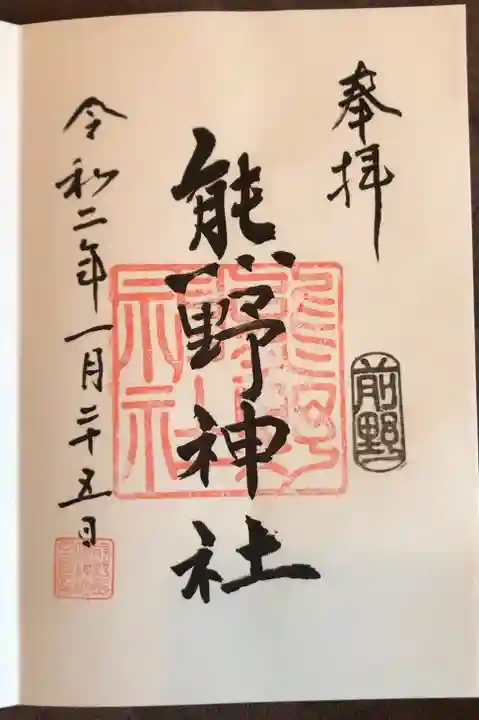 奉拝
前野
熊野神社
令和二年一月二十五日